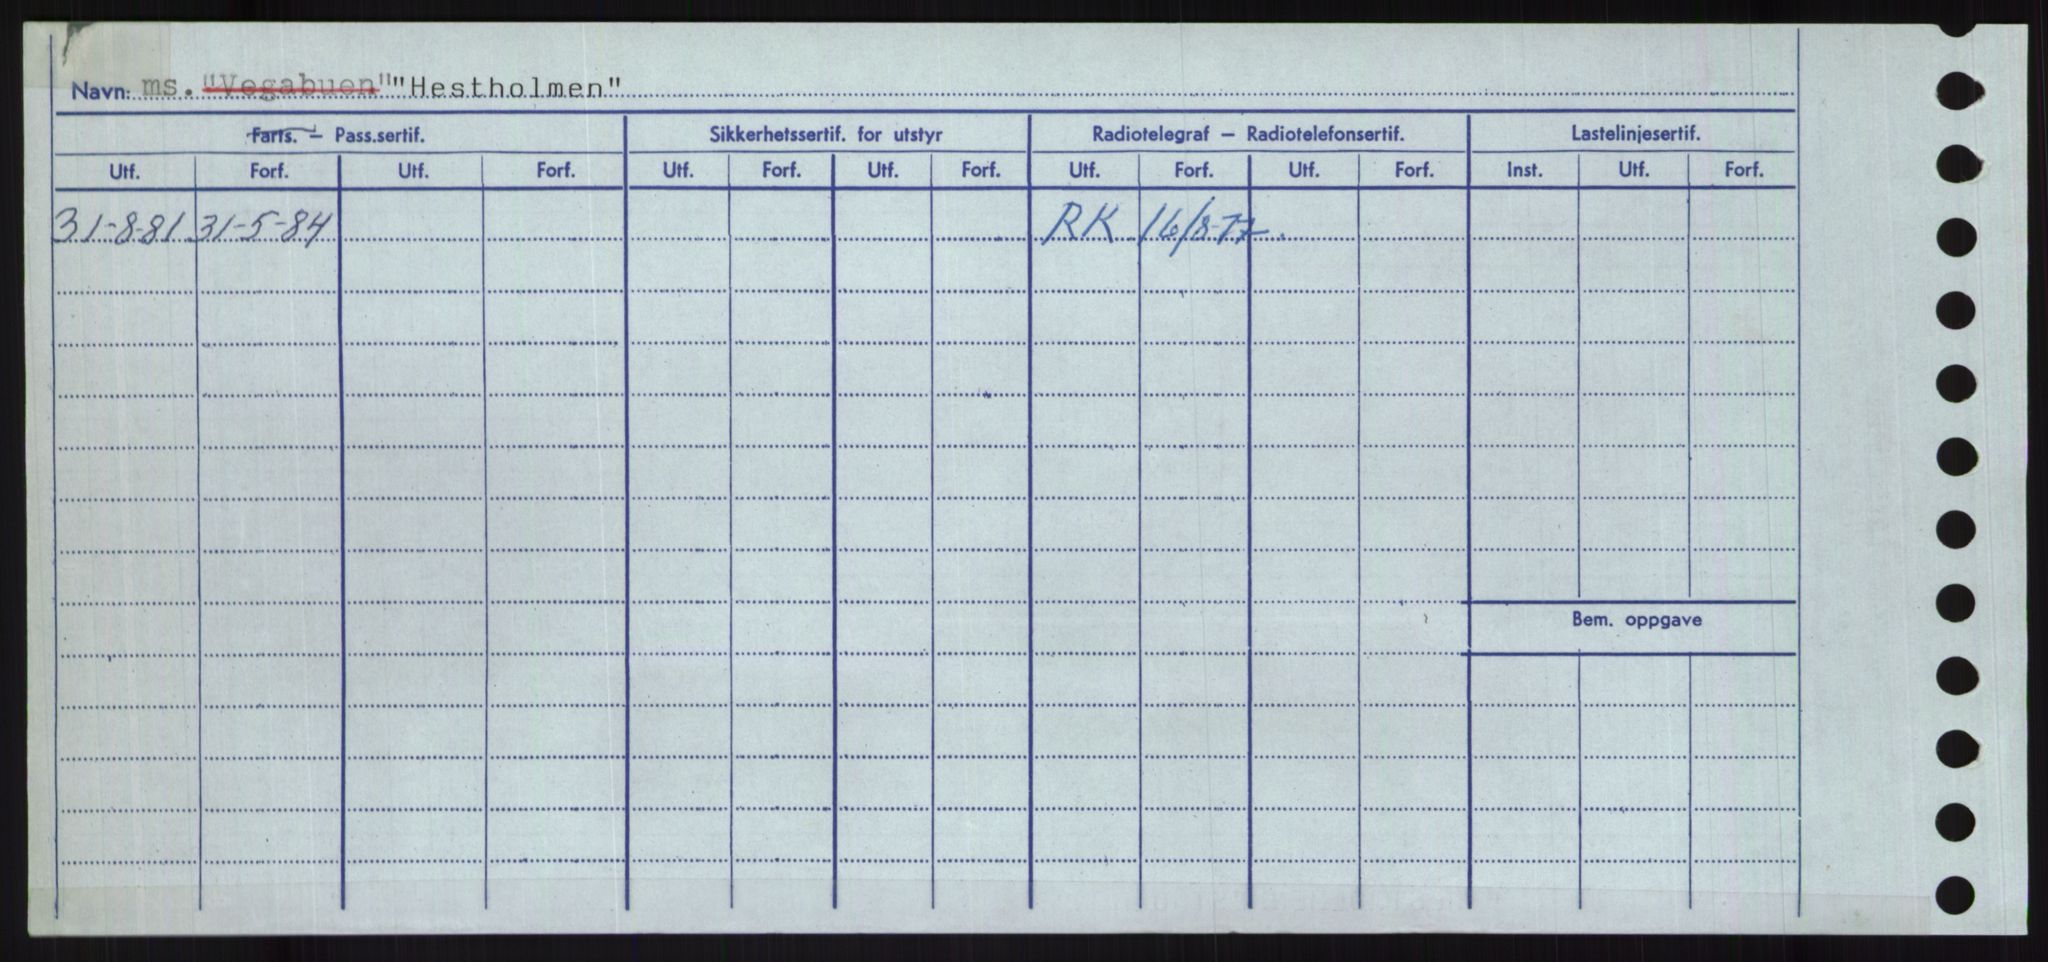 Navn: ms. "Vegabuen" "Hestholmen"
Farts. – Pass.sertif. Sikkerhetssertif. for utstyr Radiotelegraf – Radiotelefonsertif. Lastelinjesertif.
Utf. Forf. Utf. Forf. Utf. Forf. Utf. Forf. Utf. Forf. Utf. Forf. Inst. Utf. Forf.
31-8-81 31-5-84 RK 16/8-77.
Bem. oppgave